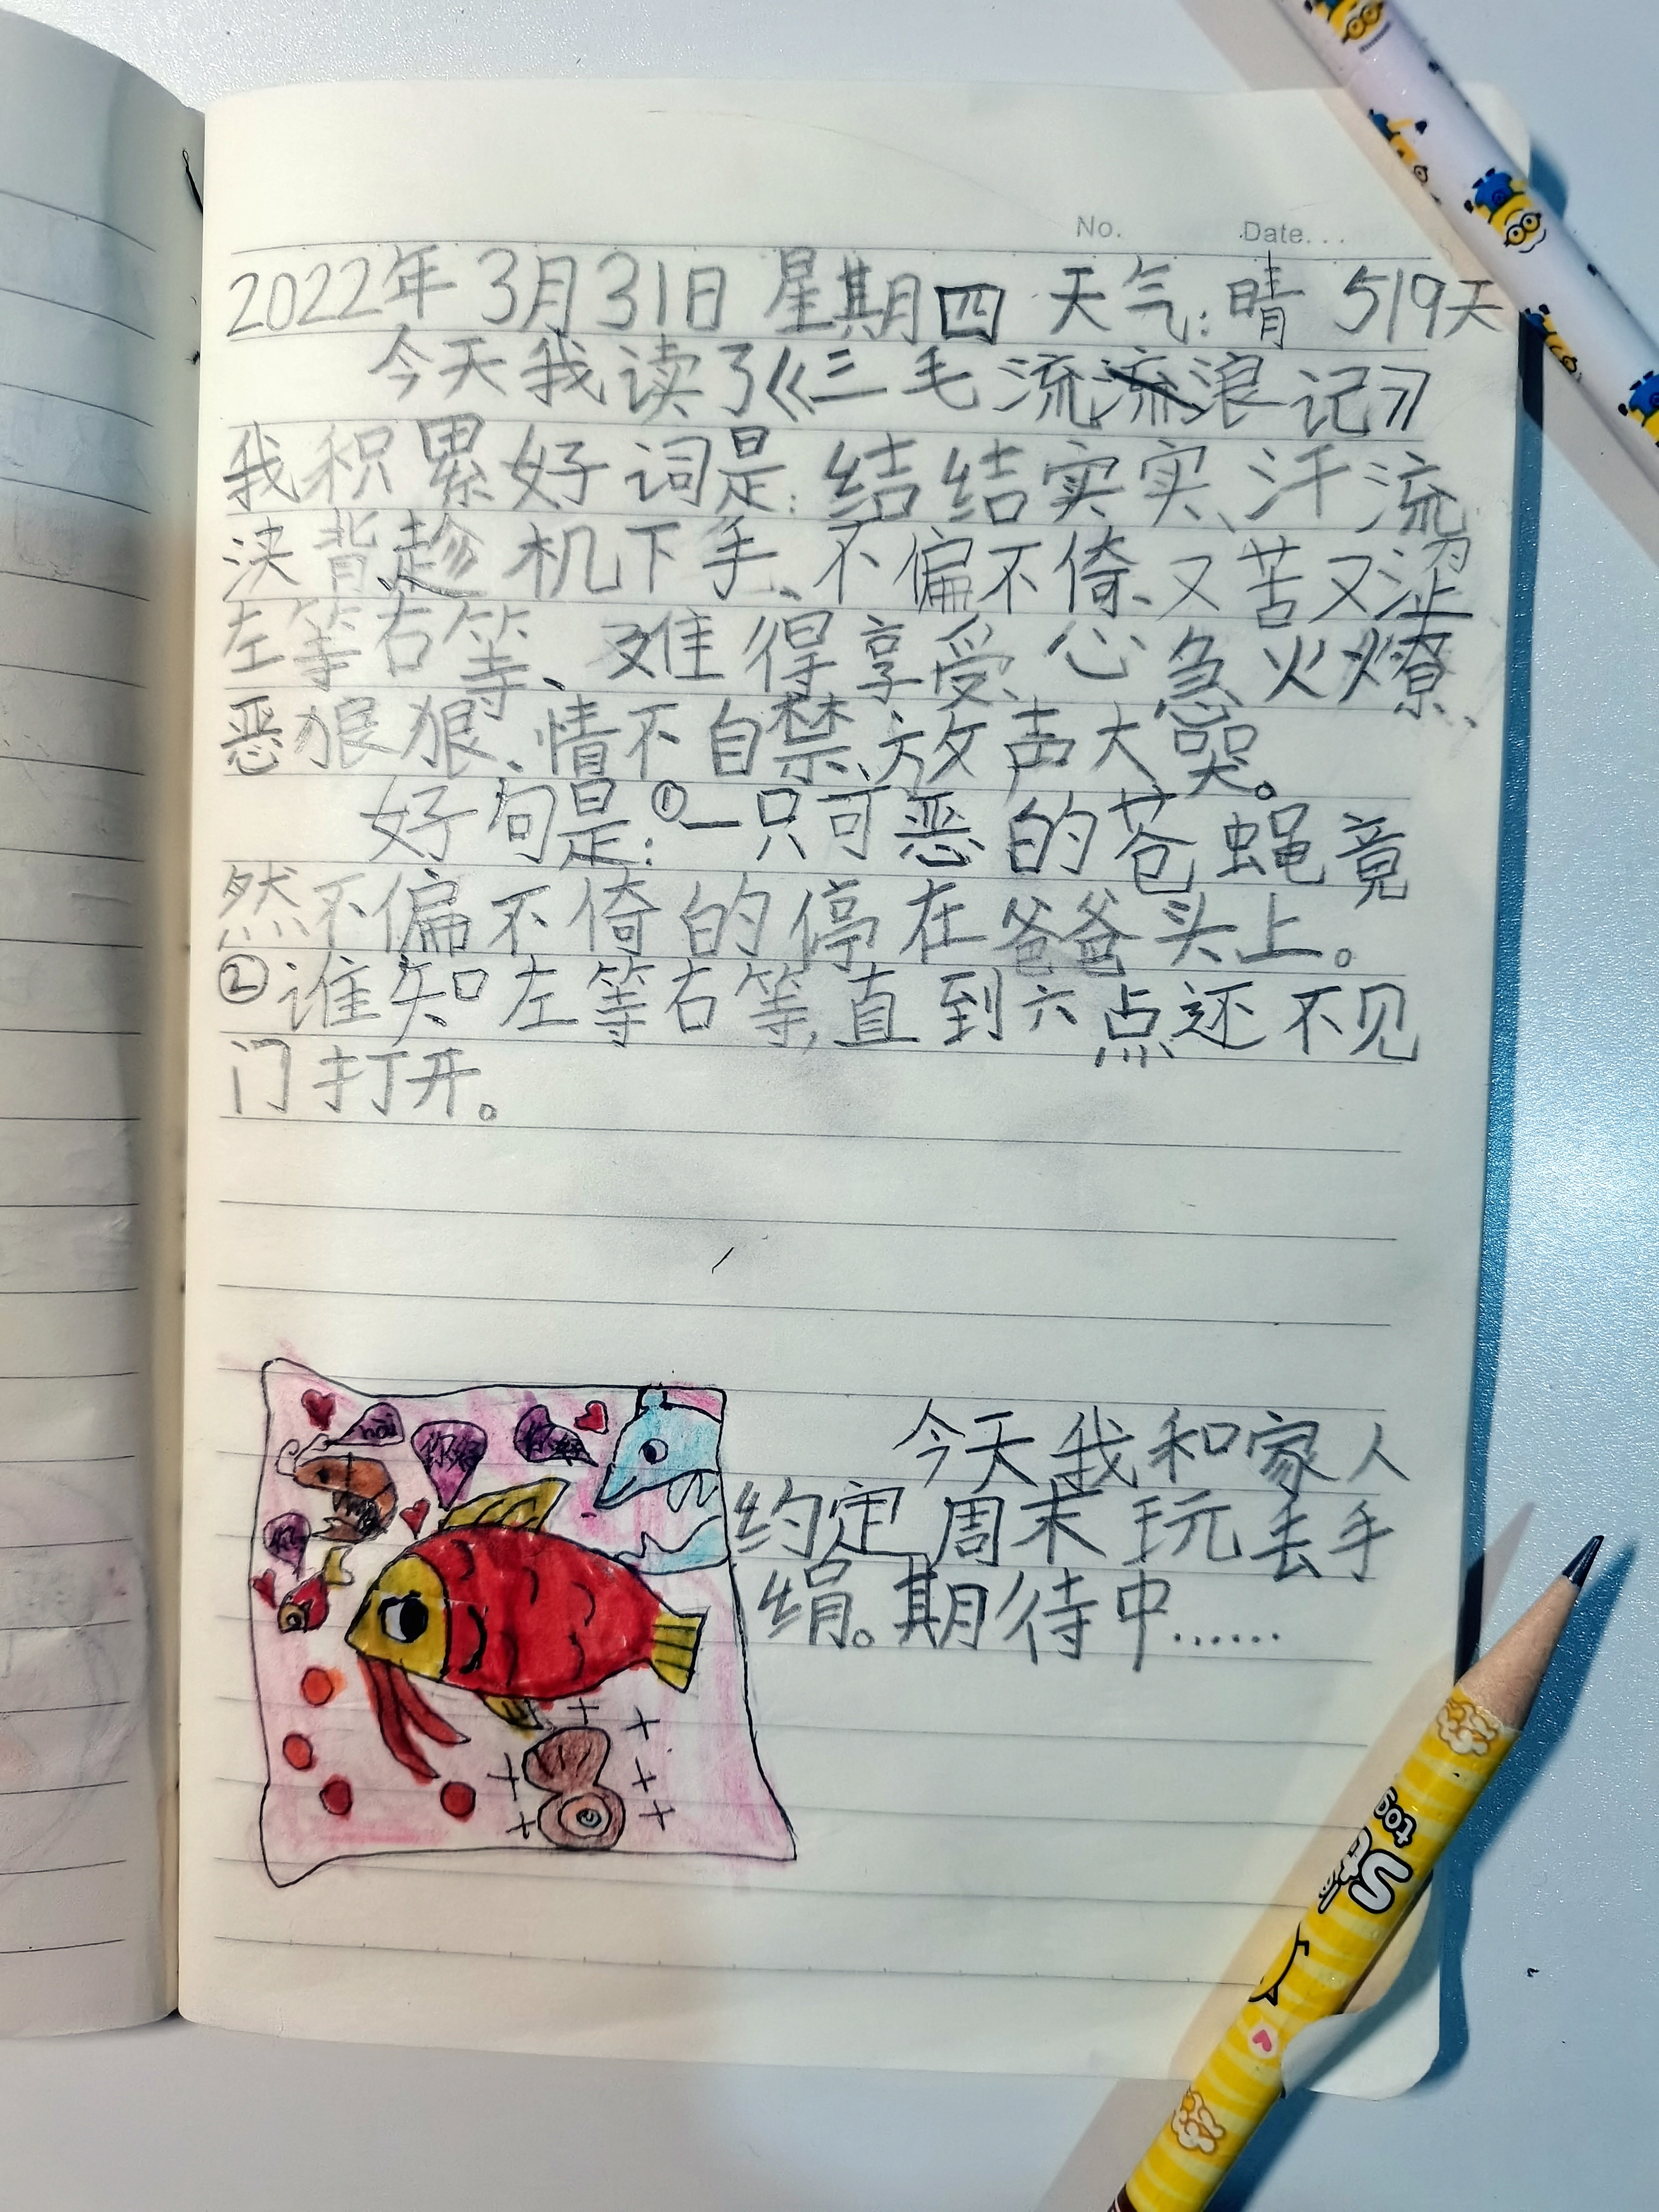 No. Date...
2022年3月31日 星期四 天气:晴 519天
今天我读了《三毛流浪记》
我积累好词是:结结实实、汗流
浃背、趁机下手、不偏不倚、又苦又涩、
左等右等、难得享受、心急火燎、
恶狠狠、情不自禁、放声大哭。
好句是:①一只可恶的苍蝇竟
然不偏不倚的停在爸爸头上。
②谁知左等右等,直到六点还不见
门打开。
今天我和家人
约定周末玩丢手
绢。期待中……
你好